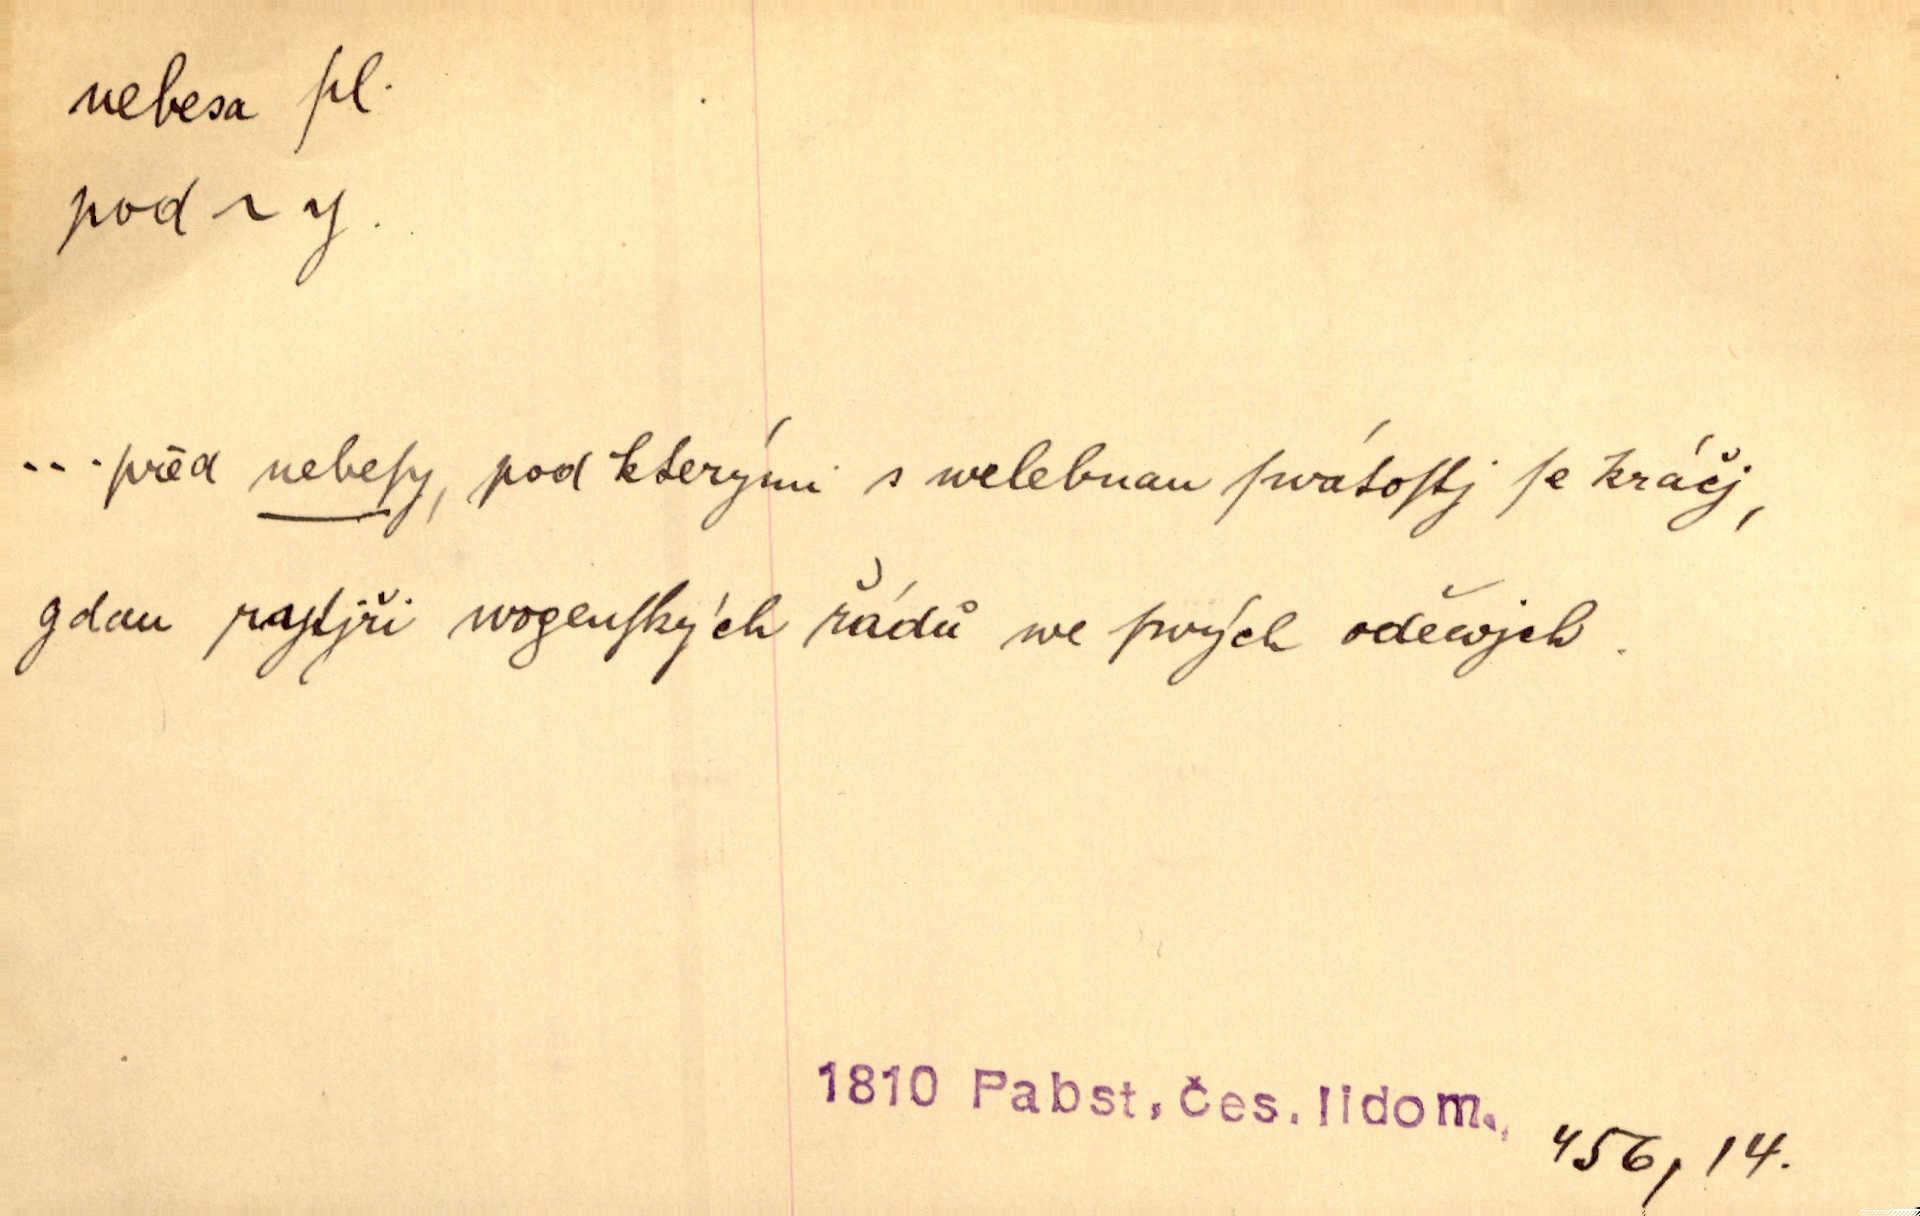 nebesa pl.
pod ~ y.
... přěd nebeſy, pod kterými s welebnau ſwátoſtj ſe kráčj,
gdau paſtjři wogenſkých řádů we ſwých oděwjch.
1810 Pabst, čes. lidom., 456, 14.